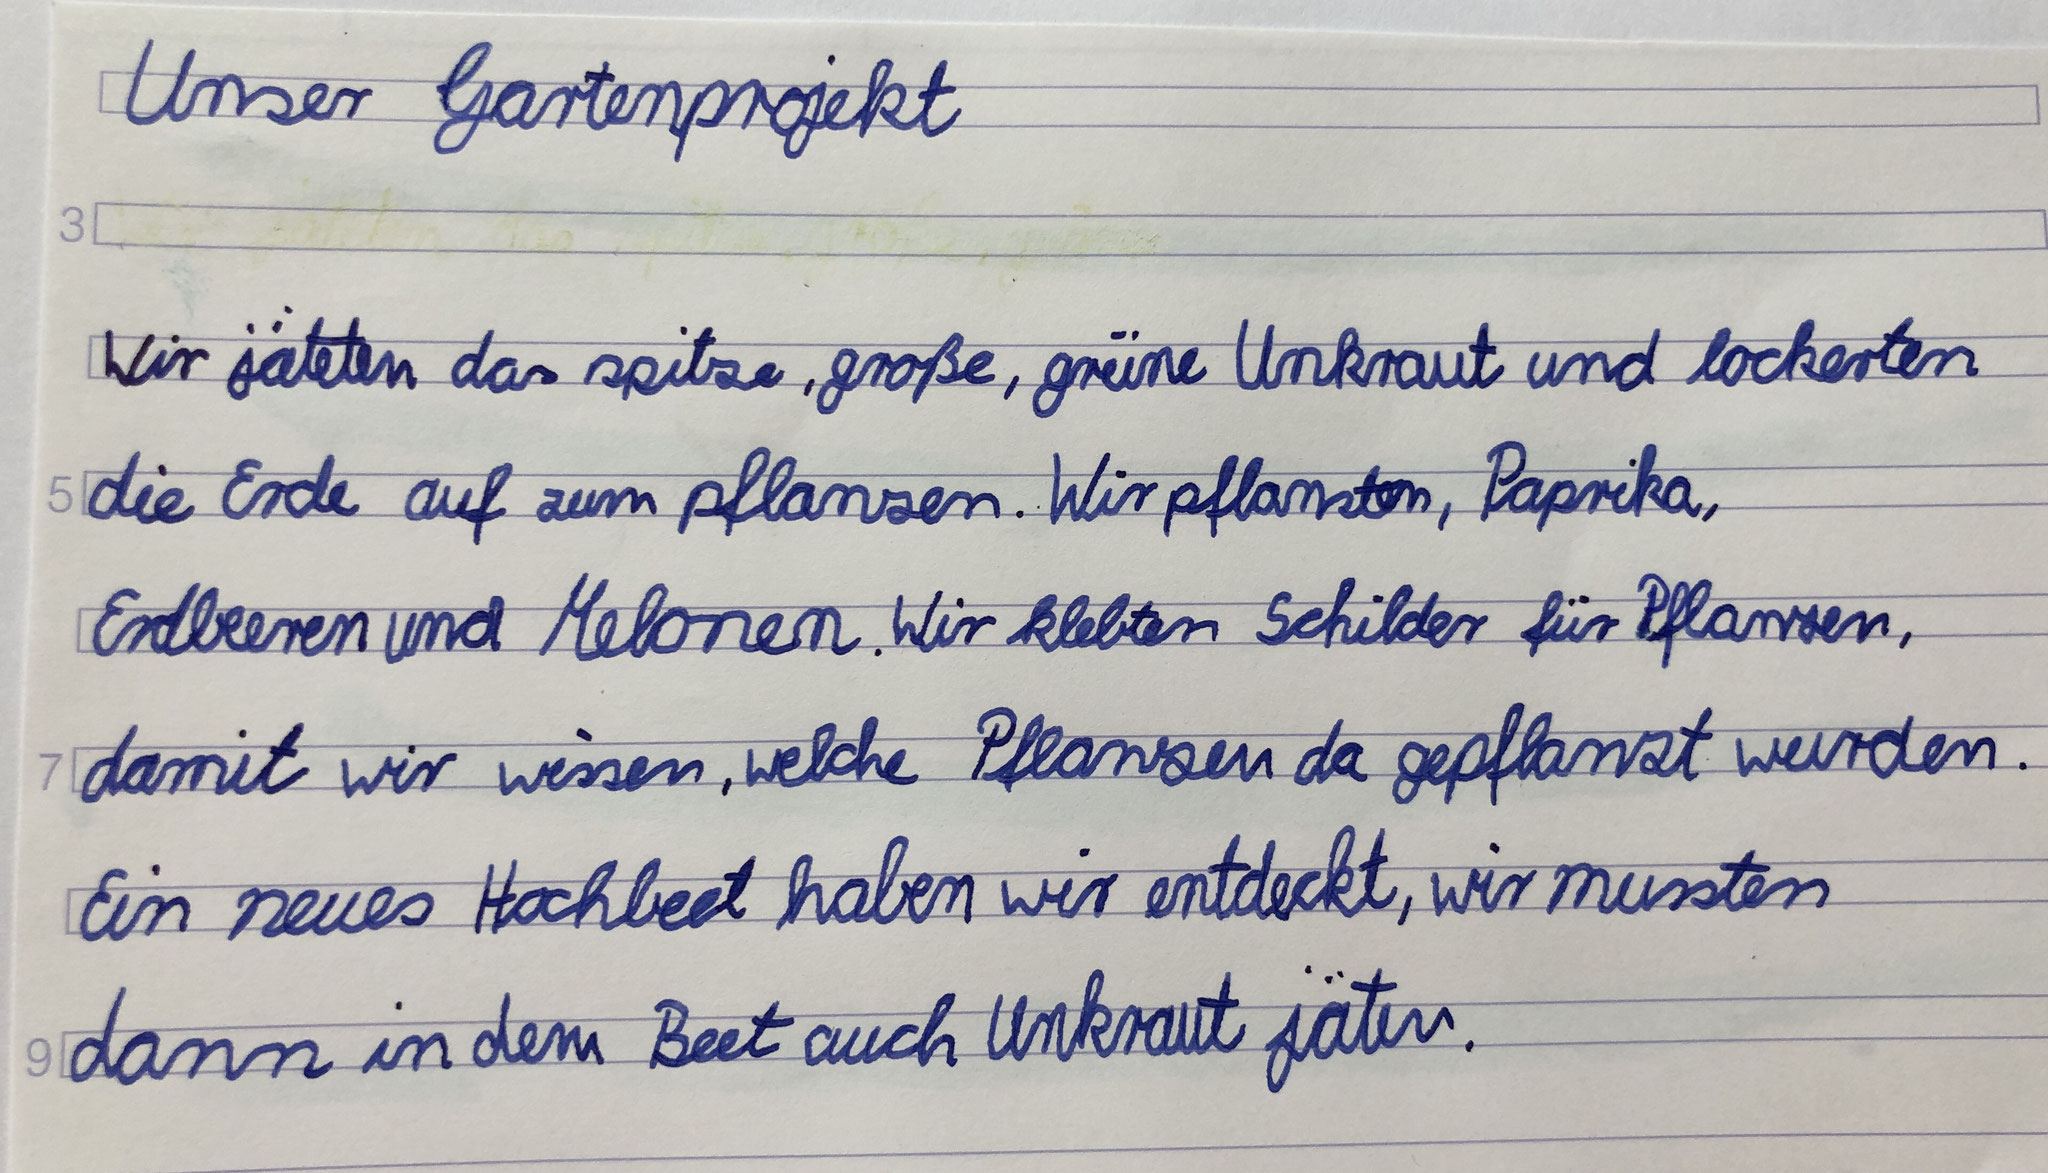 Unser Gartenprojekt
3
Wir jäteten das spitze, große, grüne Unkraut und lockerten
5 die Erde auf zum pflanzen. Wir pflanzten, Paprika,
Erdbeeren und Melonen. Wir klebten Schilder für Pflanzen,
7 damit wir wissen, welche Pflanzen da gepflanzt wurden.
Ein neues Hochbeet haben wir entdeckt, wir mussten
9 dann in dem Beet auch Unkraut jäten.